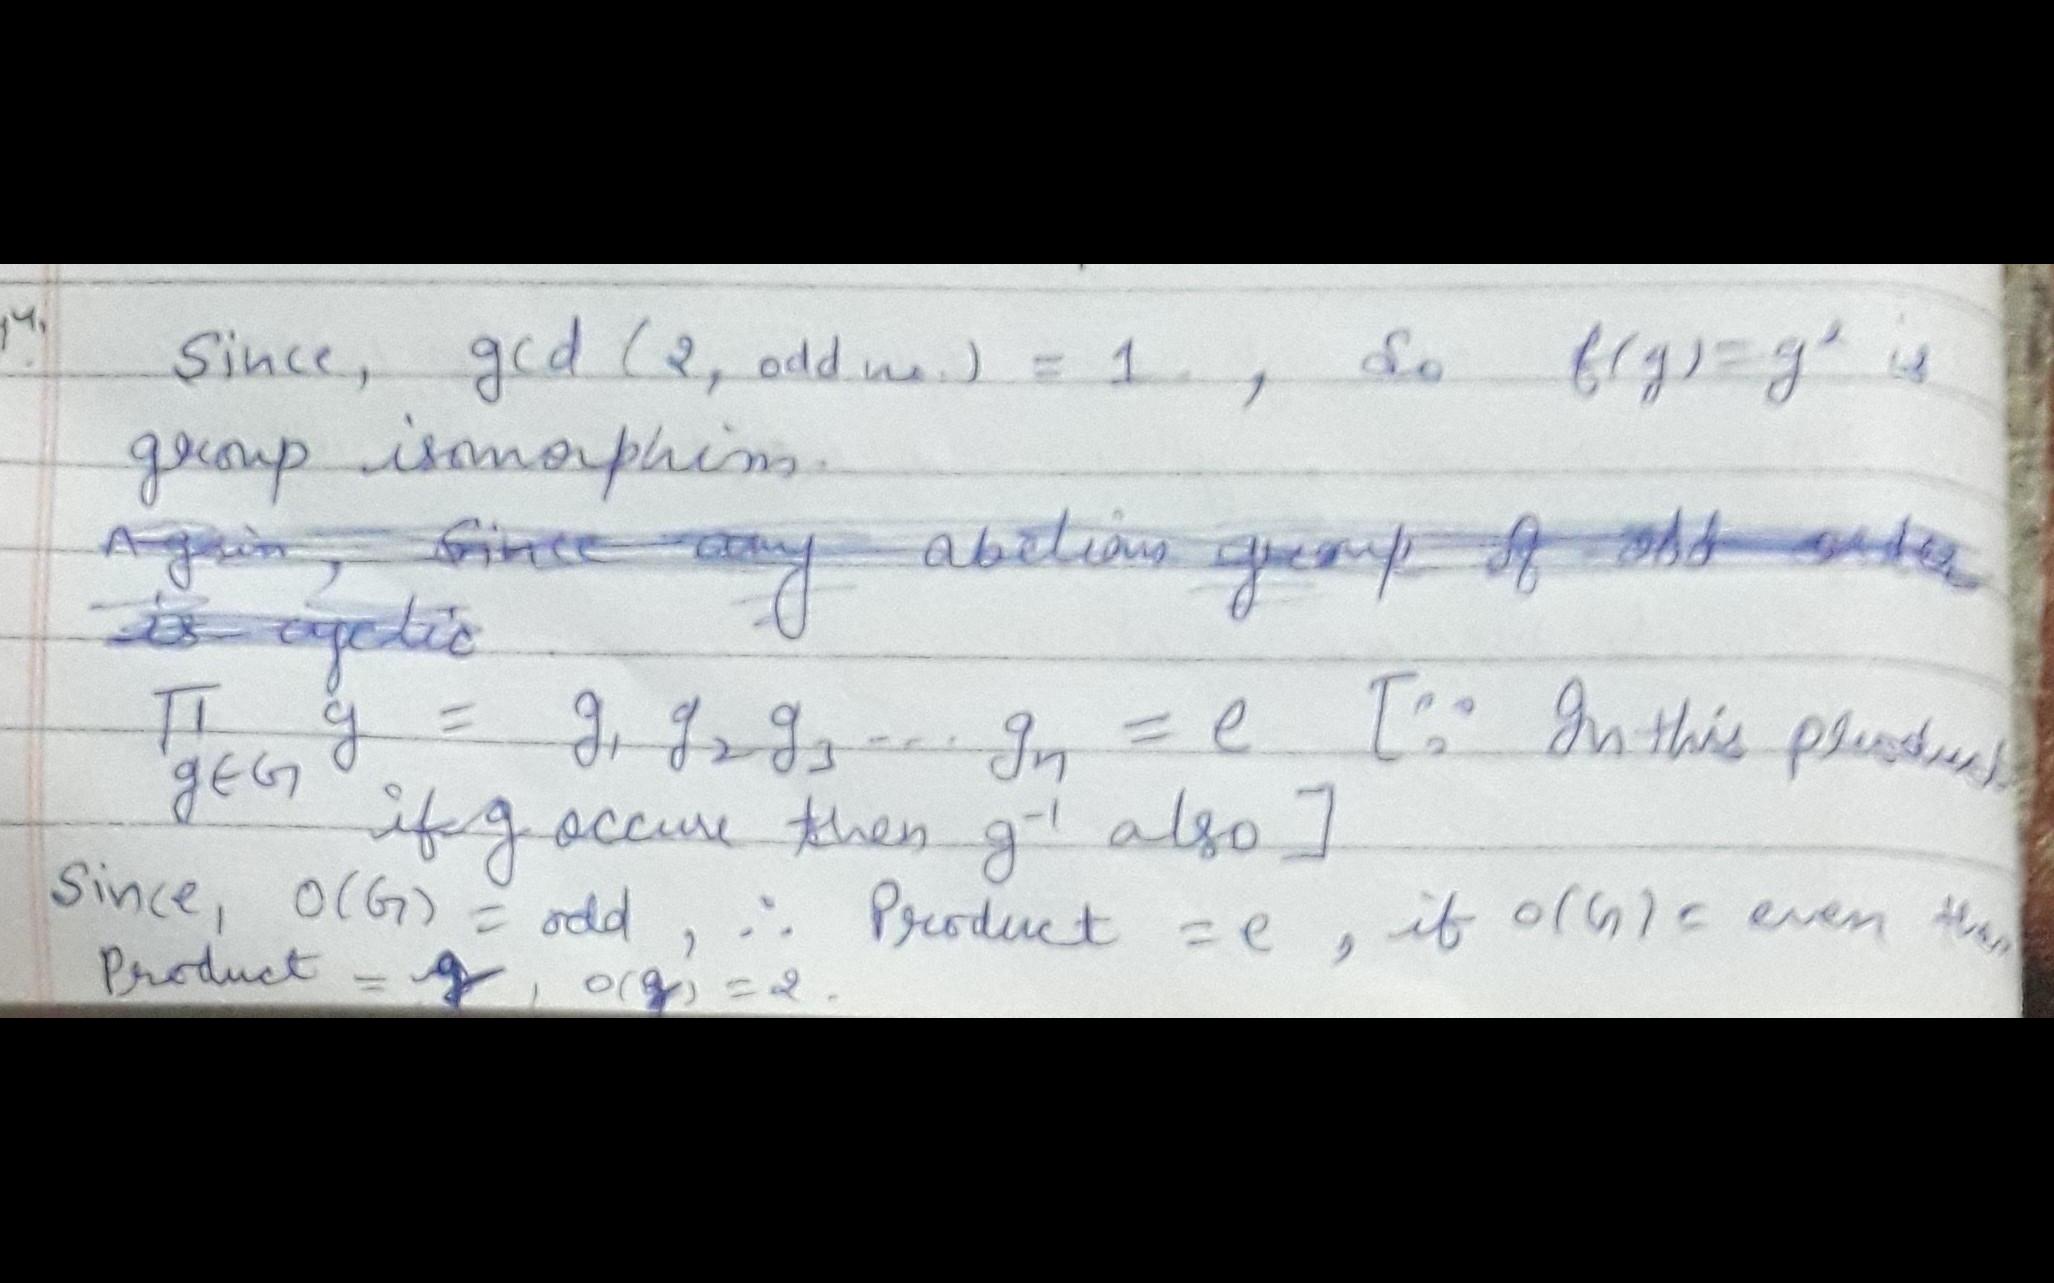 14.
Since, gcd (2, odd no.) = 1 , So f(g)=g² is
group isomorphism.
Again, Since any abelian group of odd order
is cyclic
∏ g = g₁ g₂ g₃ .... gₙ = e [∵ In this product
g∈G if g occure then g⁻¹ also]
Since, O(G) = odd , ∴ Product = e , if o(G) = even then
Product = g , o(g) = 2 .